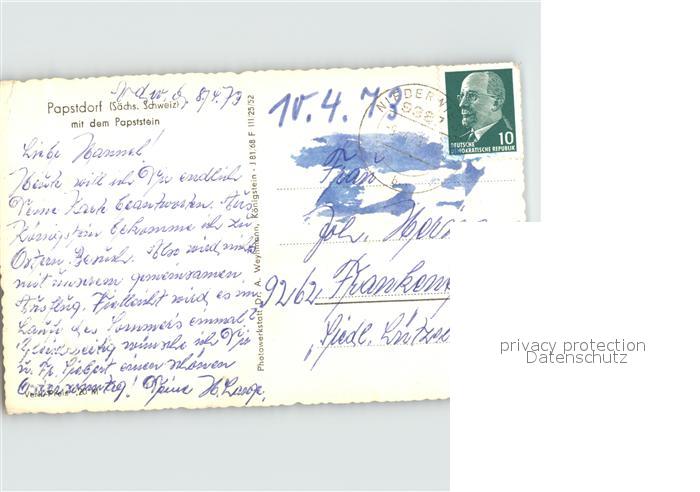 Ndw, d. 8/4.73
Papstdorf (Sächs. Schweiz)
mit dem Papststein
Liebe Hannel!
Heute will ich Dir endlich
Deine Karte beantworten. Aus
Königstein bekomme ich zu
Ostern Besuch. Also wird nichts
mit unserem gemeinsamen
Ausflug. Vielleicht wird es im
Laufe des Sommers einmal?
Gleichzeitig wünsche ich Dir
u. Fr. Siebert einen schönen
Ostersonntag! Deine H. Lange.
Verk.-Preis -,20 M
Photowerkstatt Dr. A. Weyhmann, Königstein · J 81/68 F III/25/52
10.4.73
NIEDERN
DEUTSCHE
DEMOKRATISCHE REPUBLIK
10
Frau
Joh.
9262 Franken
Siedl. Lützow
privacy protection
Datenschutz